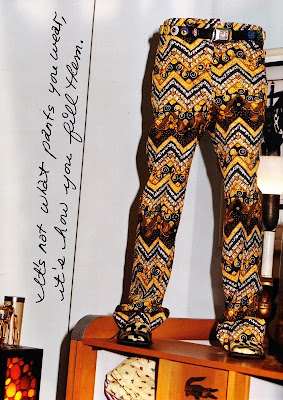 It's not what pants you wear,
it's how you fill them.